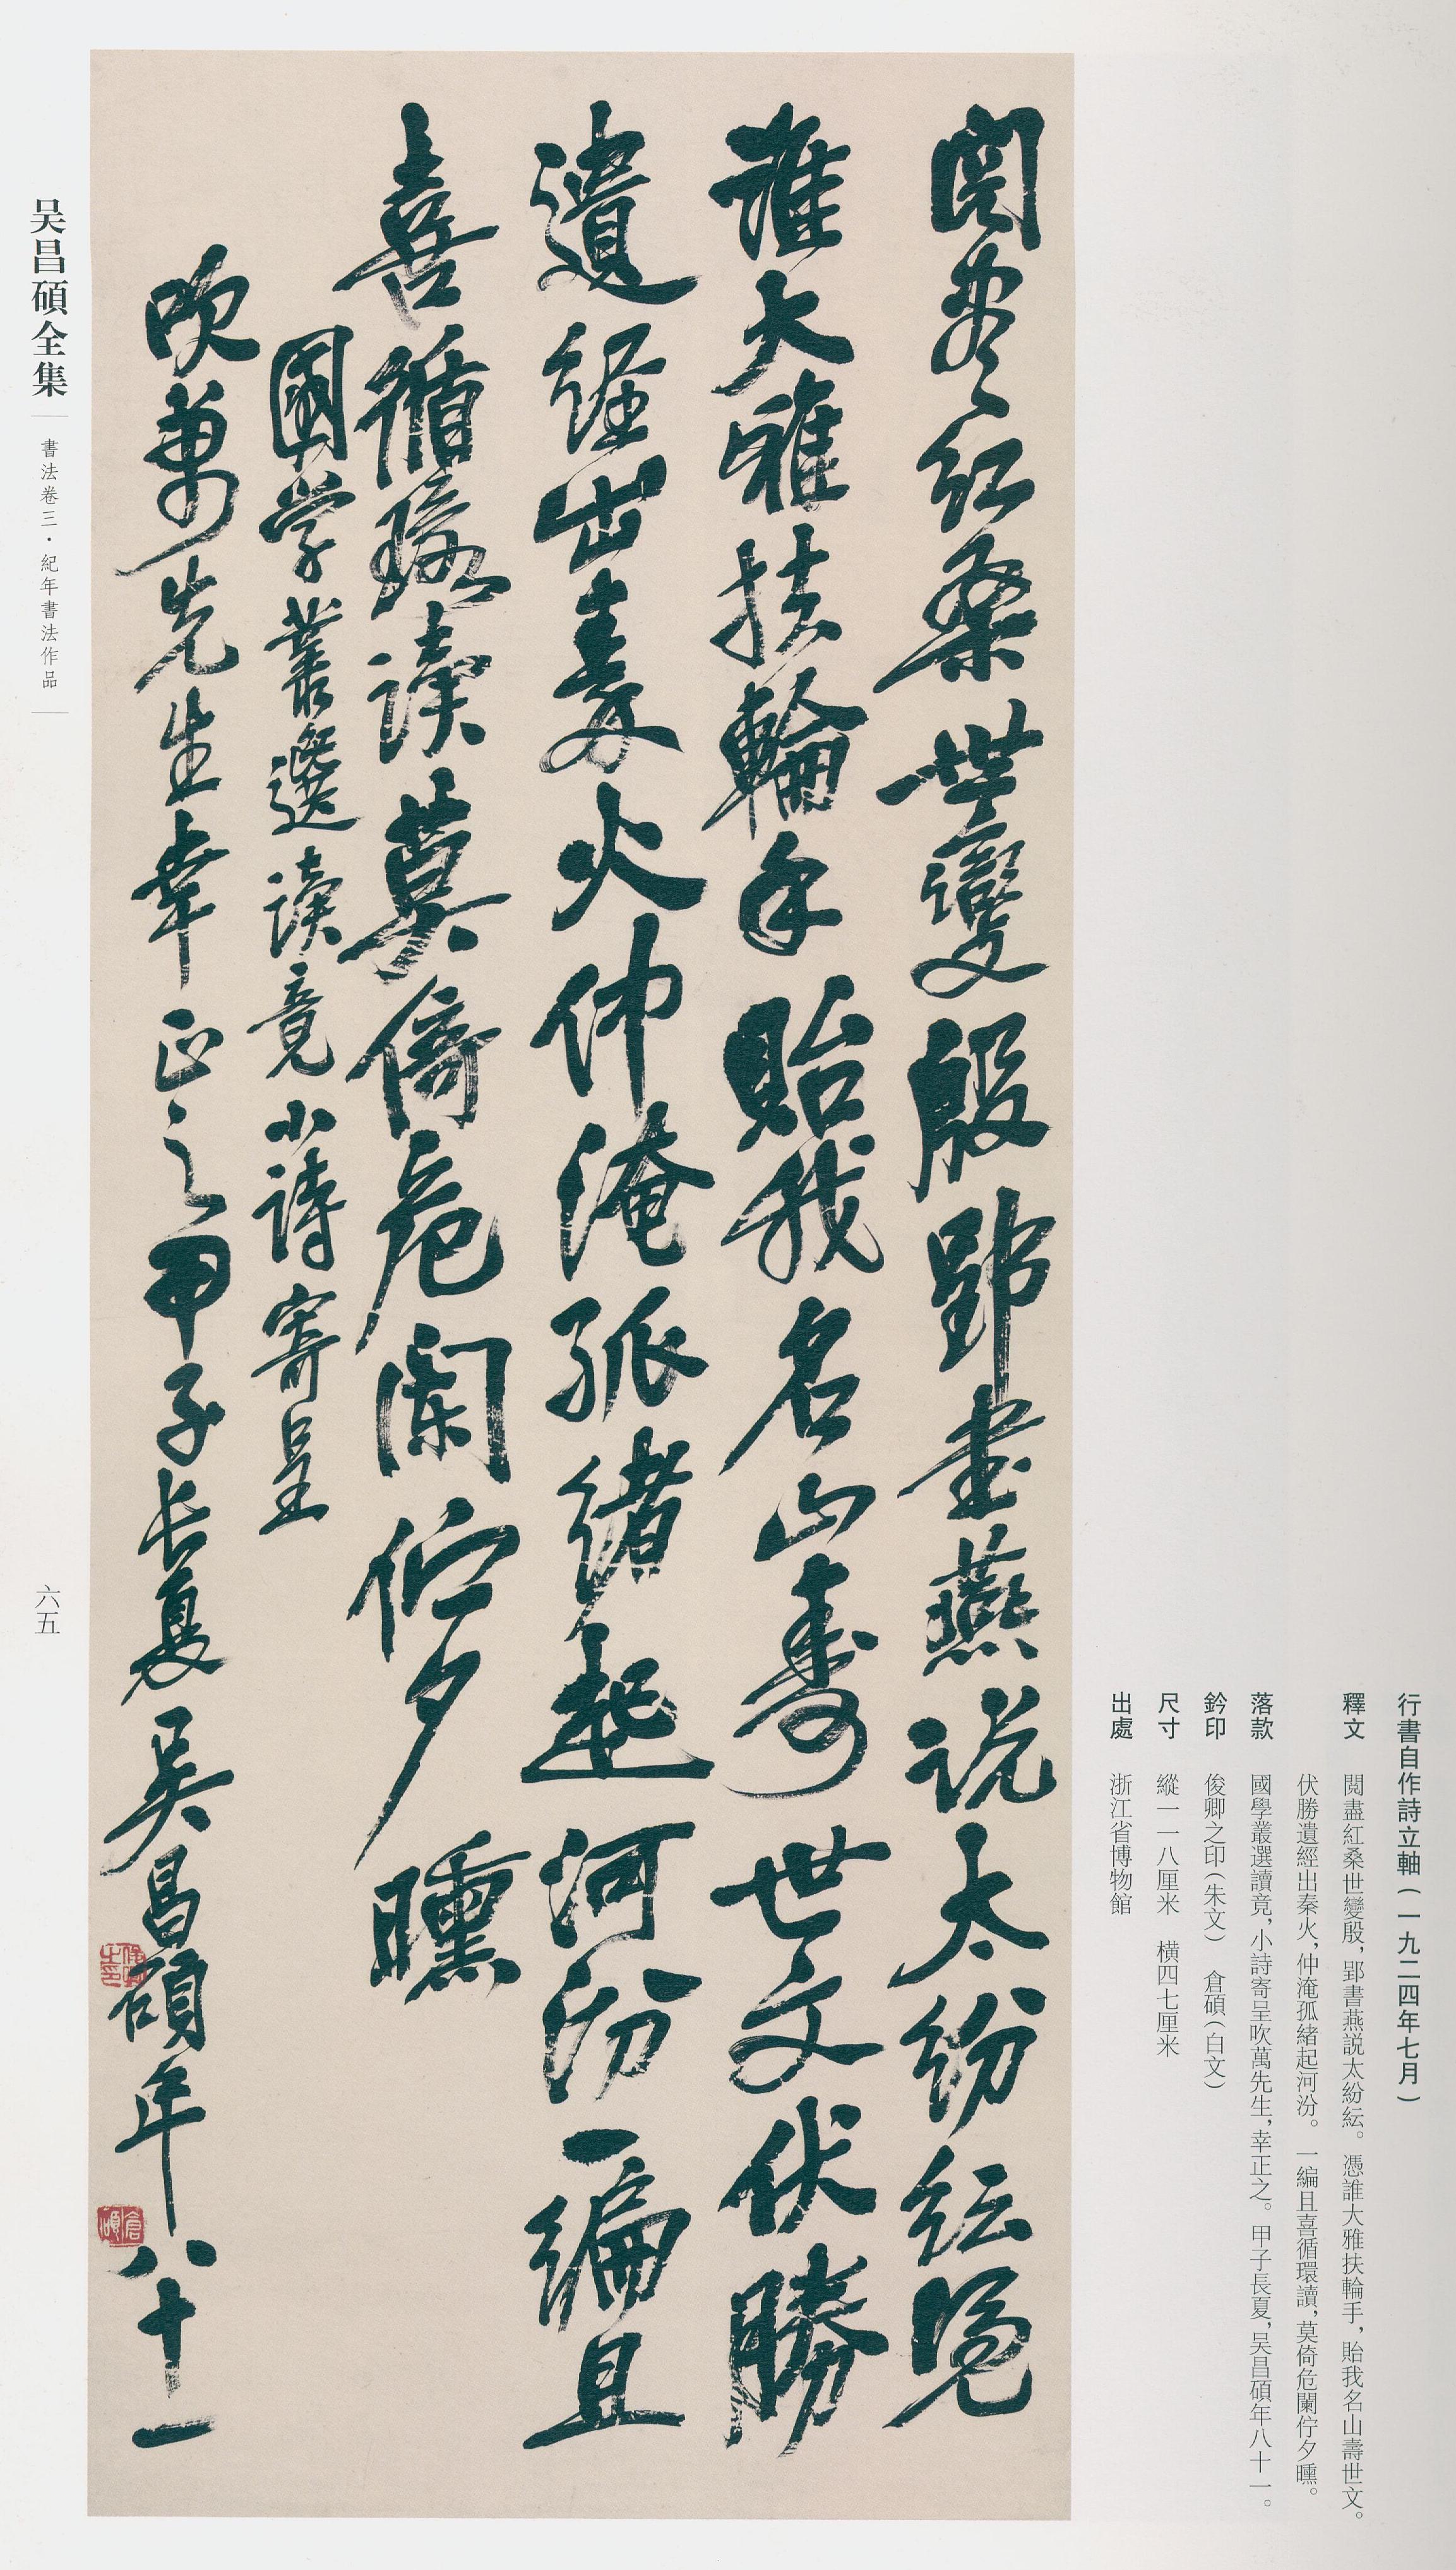 行書自作詩立軸（一九二四年七月）
釋文　閲盡紅桑世變殷，郢書燕説太紛紜。憑誰大雅扶輪手，貽我名山壽世文。
伏勝遺經出秦火，仲淹孤緒起河汾。一編且喜循環讀，莫倚危闌佇夕曛。
落款　國學叢選讀竟，小詩寄呈吹萬先生，幸正之。甲子長夏，吴昌碩年八十一。
鈐印　俊卿之印（朱文）　倉碩（白文）
尺寸　縱一一八厘米　橫四七厘米
出處　浙江省博物館
閲盡紅桑世變殷郢書燕説太紛紜憑
誰大雅扶輪手貽我名山壽世文伏勝
遺經出秦火仲淹孤緒起河汾一編且
喜循環讀莫倚危闌佇夕曛
國學叢選讀竟小詩寄呈
吹萬先生幸正之甲子長夏吴昌碩年八十一
俊卿之印
倉碩
吴昌碩全集
書法卷三·紀年書法作品
六五